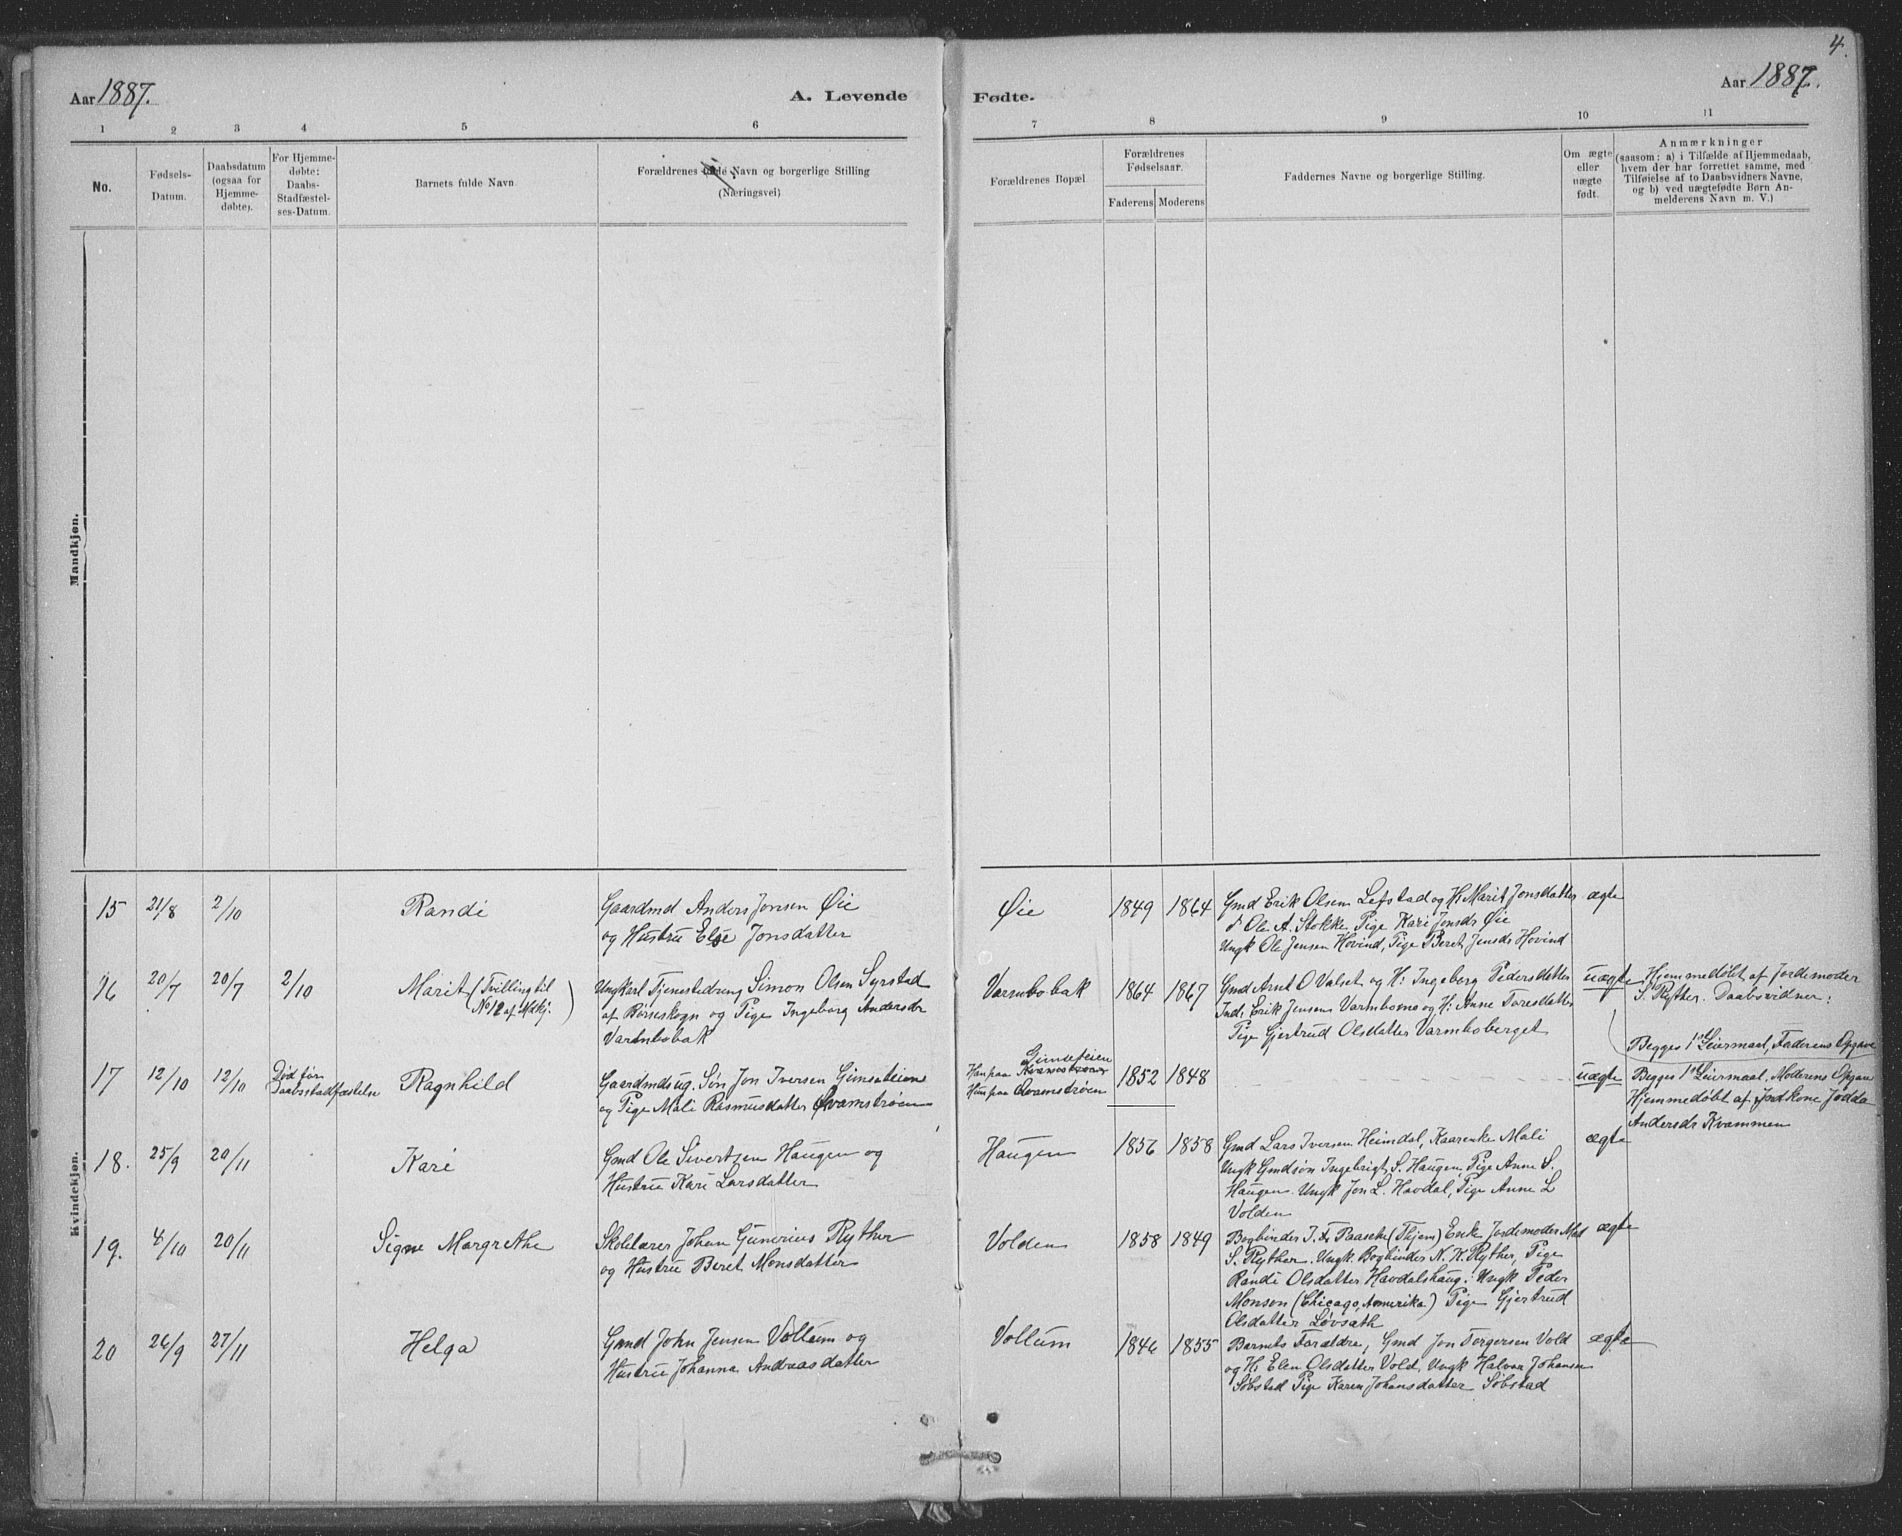 4.
Aar 1887.
A. Levende Fødte.
Aar 1887.
1 2 3 4 5 6 7 8 9 10 11
No.
Fødsels-
Datum.
Daabsdatum
(ogsaa for
Hjemme-
døbte).
For Hjemme-
døbte:
Daabs-
Stadfæstel-
ses-Datum.
Barnets fulde Navn
Forældrenes fulde Navn og borgerlige Stilling
(Næringsvei)
Forældrenes Bopæl
Forældrenes
Fødselsaar.
Faderens Moderens
Faddernes Navne og borgerlige Stilling.
Om ægte
eller
uægte
født.
Anmærkninger
(saasom: a) i Tilfælde af Hjemmedaab,
hvem der har forrettet samme, med
Tilføielse af to Daabsvidners Navne,
og b) ved uægtefødte Børn An-
melderens Navn m. V.)
Mandkjøn.
Kvindekjøn.
15 21/8 2/10
Randi
Gaardmd Anders Jonsen Øie
og Hustru Else Jonsdatter
Øie
1849 1864
Gmd Erik Olsen Lefstad og H: Marit Jonsdatter
Ole A. Stokke Pige Kari Jonsds Øie
Ungk Ole Jensen Hovind, Pige Beret Jensds Hovind
ægte
16 20/7 20/7 2/10
Marit (Tvilling til
No 12 af Mkj.)
Ungkarl Tjenestedreng Simon Olsen Syrstad
af Børseskogn og Pige Ingeborg Andersdr
Varmbobak
Varmbobak
1864 1867
Gmd Arnt O Valset og H: Ingeberg Pedersdatter
Ind. Erik Jensens Varmbomo og H: Anne Toresdatter
Pige Gjertrud Olsdatter Varmboberget
uægte
Hjemmedøbt af Jordemoder
S. Ryther. Daabsvidner:
Begges 1ste Leiermaal, Faderens Opgave
17 12/10 12/10
Død før
Daabsstadfæstelse
Ragnhild
Gaardmds ug. Søn Jon Iversen Gimseteien
og Pige Mali Rasmusdatter Qvamstrøen
Gimseteien
Han paa
Hun paa Qvamstrøen
1852 1848
uægte
Begges 1ste Leiermaal, Moderens Opgave
Hjemmedøbt af Jordkone Jødda
Andersds Kvammen
18. 25/9 20/11
Kari
Gmd Ole Sivertsen Haugen og
Hustru Kari Larsdatter
Haugen
1856 1858
Gmd Lars Iversen Heimdal, Kaarenke Mali
Ungk Gmdsøn Ingebrigt S. Haugen, Pige Anne S.
Haugen. Ungk Jon L. Havdal, Pige Anne L
Volden
ægte
19. 4/10 20/11
Signe Margrethe
Skolelærer Johan Gunerius Ryther
og Hustru Beret Monsdatter
Volden
1858 1849
Bogbinder J. F. Paaseke (Thjem) Enke Jordemoder Mad
S. Ryther. Ungk. Bogbinder N. K. Ryther, Pige
Randi Olsdatter Havdalshaug. Ungk Peder
Monson (Chicago, Amerika) Pige Gjertrud
Olsdatter Løvsæth
ægte
20 26/9 27/11
Helga
Gmd John Jensen Vollum og
Hustru Johanna Andreasdatter
Vollum
1846 1855
Barnets Forældre, Gmd Jon Torgersen Vold
og H: Elen Olsdatter Vold. Ungk Halvor Johansen
Søbstad Pige Karen Johansdatter Søbstad
ægte